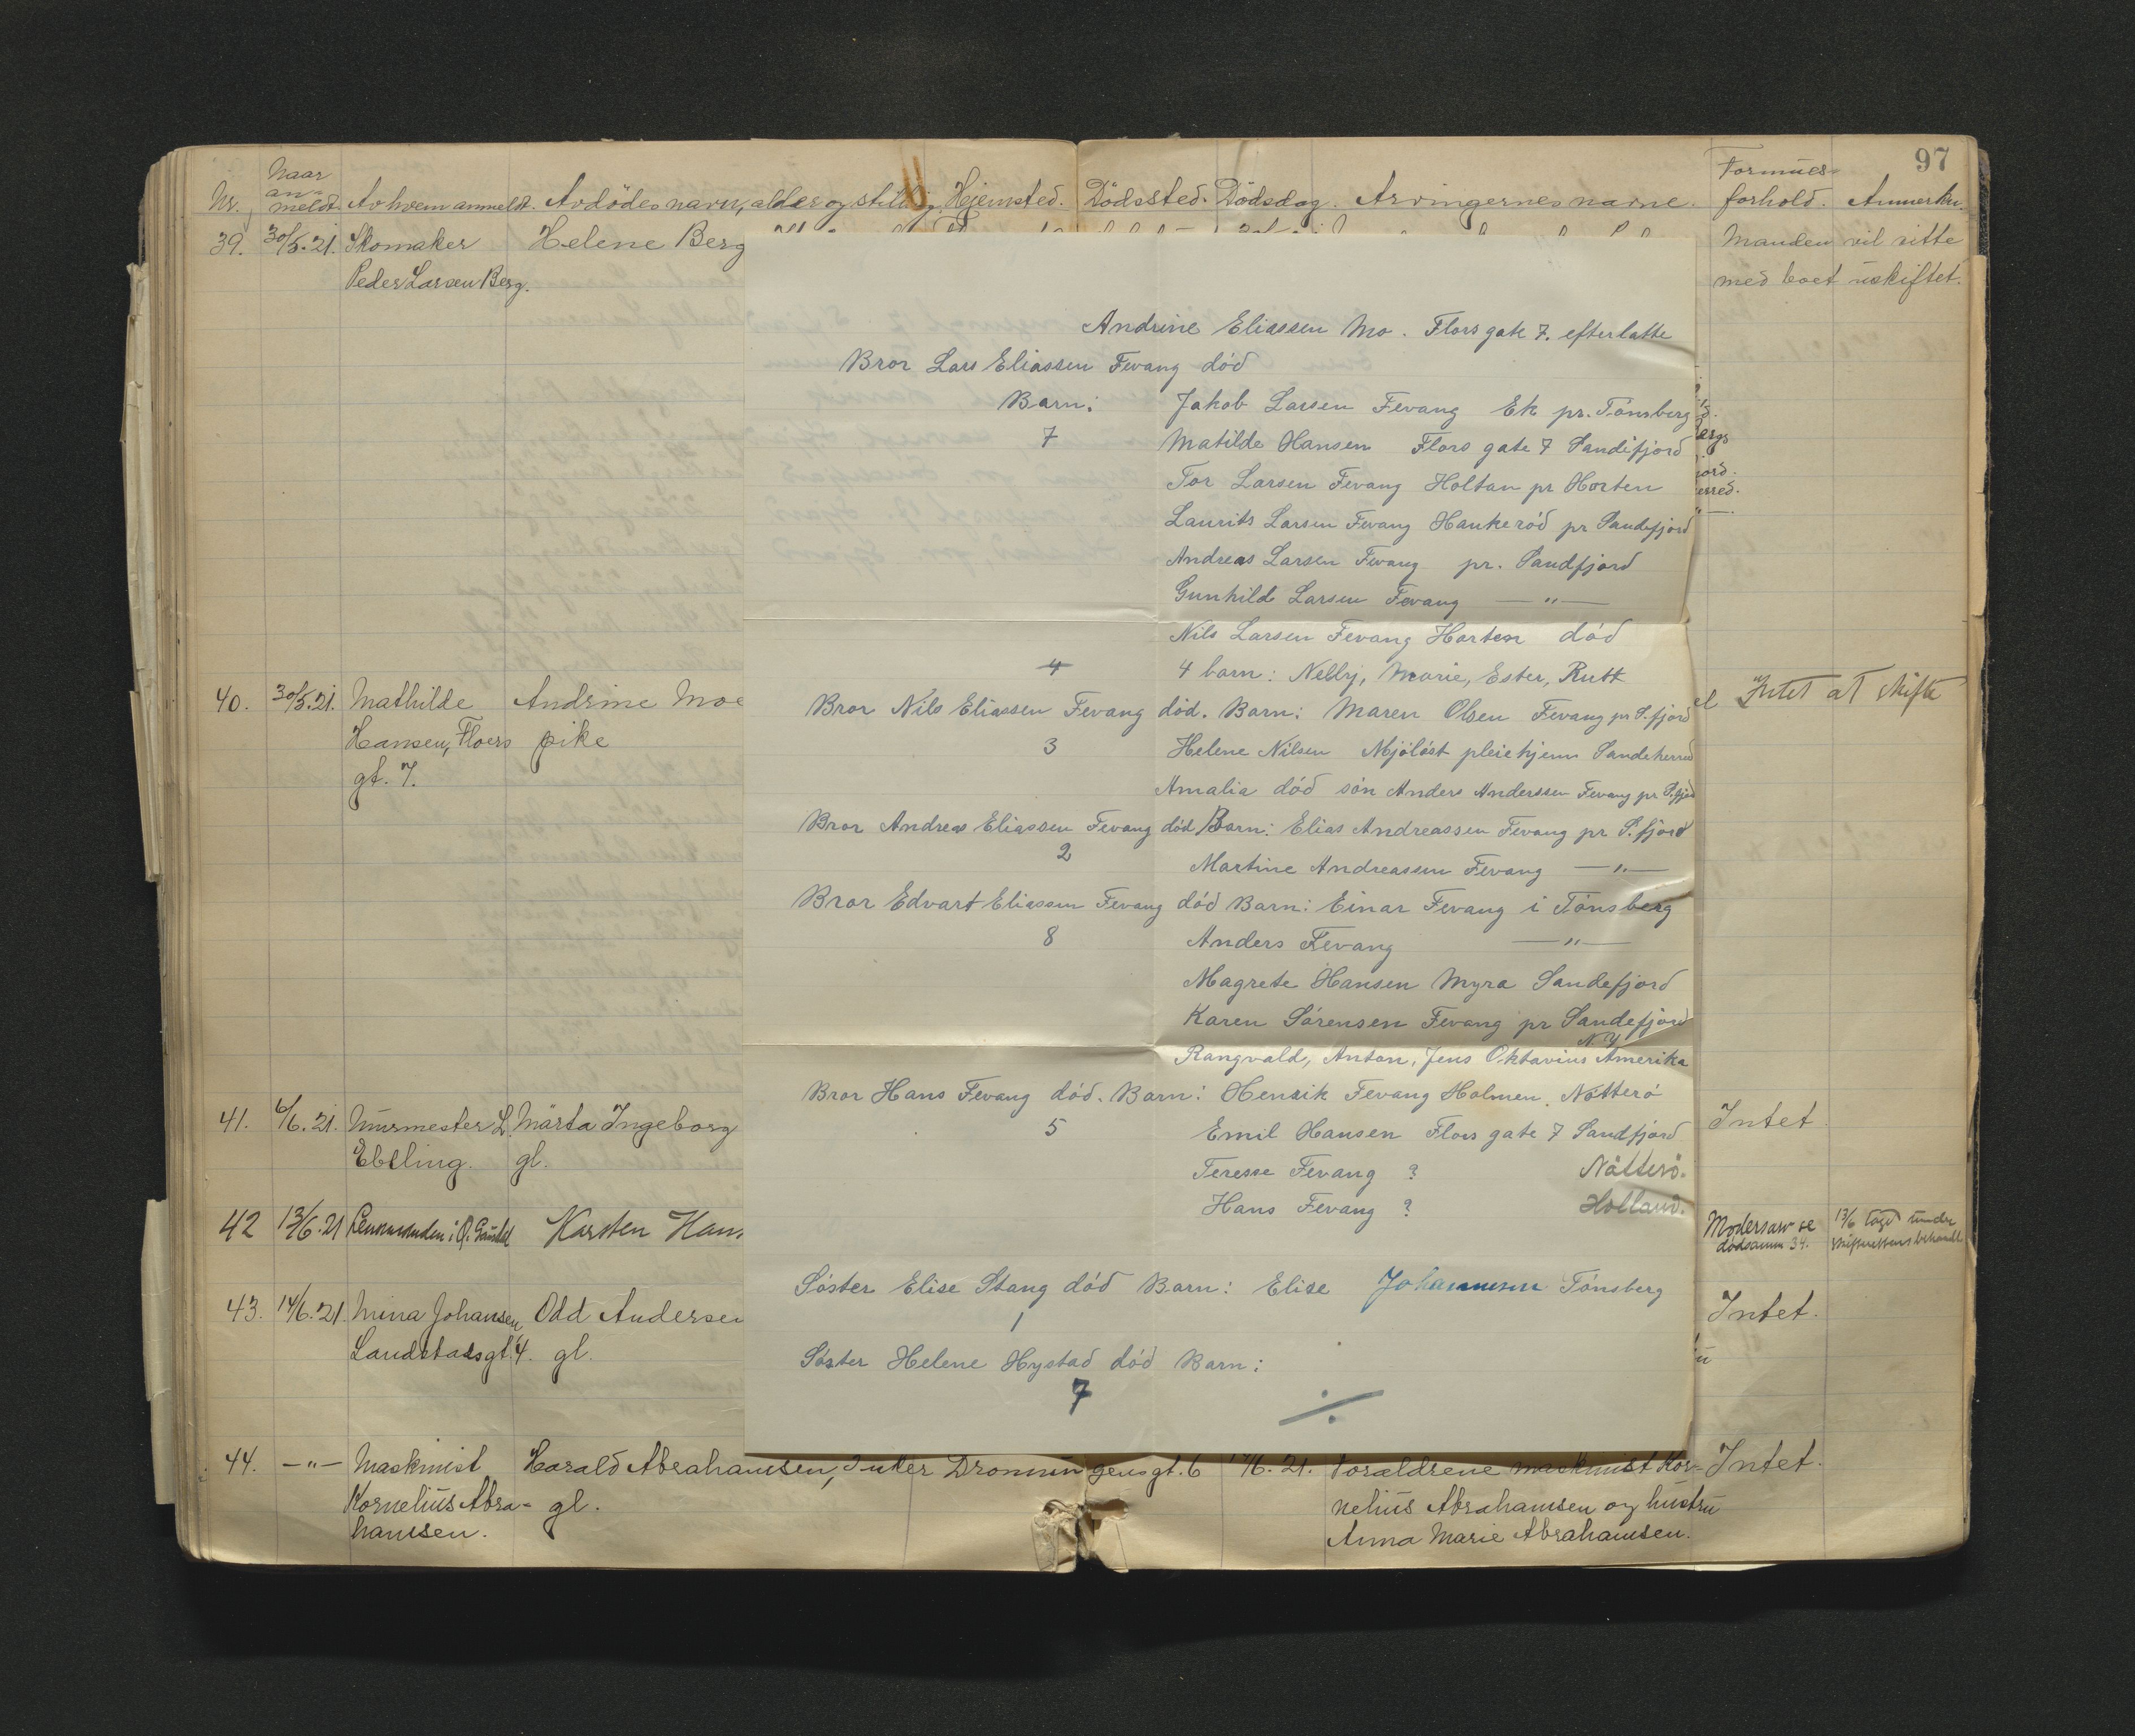 97
Nr. Naar an-meldt. Av hvem anmeldt. Avdödes navn, alder og stilling Hjemsted. Dödssted. Dödsdag. Arvingernes navne. Formues-forhold. Anmerkn.
39. 30/5.21. Skomaker Helene Berg Manden vil sitte
Peder Larsen Berg. med boet uskiftet.
Andrine Eliassen Mo. Flors gate 7. efterlatte
Bror Lars Eliassen Fevang död
Barn: Jakob Larsen Fevang Ek pr. Tönsberg
7 Matilde Hansen Flors gate 7 Sandifjord
Tor Larsen Fevang Holtan pr Horten
Laurits Larsen Fevang Haukeröd pr Sandefjord
Andreas Larsen Fevang pr. Sandfjord
Gunhild Larsen Fevang — " —
Nils Larsen Fevang Horten död
4 4 barn: Nelly, Marie, Ester, Rutt
Bror Nils Eliassen Fevang död. Barn: Maren Olsen Fevang pr S.fjord
3 Helene Nilsen Mjölöst pleiehjem Sandeherred
Amalia död sön Anders Anderssen Fevang pr S.fjord
Bror Andreas Eliassen Fevang död Barn: Elias Andreassen Fevang pr S.fjord
2 Martine Andreassen Fevang — " —
Bror Edvart Eliassen Fevang död Barn: Einar Fevang i Tönsberg
8 Anders Fevang — " —
Magrete Hansen Myra Sandefjord
Karen Sörensen Fevang pr Sandefjord
N.Y
Rangvald, Anton, Jens Oktavius Amerika
Bror Hans Fevang död. Barn: Henrik Fevang Holmen, Nötterö
5 Emil Hansen Flors gate 7 Sandfjord
Teresse Fevang ? Nötterö.
Hans Fevang ? Holland.
Söster Elise Stang död Barn: Elise Johannesen Tönsberg
1
Söster Helene Hystad död Barn:
7 ÷
40. 30/5.21. Mathilde Andrine Moe Intet at skifte
Hansen, Floers pike
gt. 7.
41. 6/6.21. Murmester L. Märta Ingeborg Intet.
Ebeling. gl.
42 13/6.21 Karsten Hans Modersarv se 13/6 tagd under
dødsanm 34. skifterettens behandl
43. 14/6.21. Mina Johansen, Odd Andersen Intet.
Landstadsgt. 4. gl.
44. — " — Maskinist Harald Abrahamsen, Inter Dronningensgt. 6 14/6.21. Forældrene maskinist Kor- Intet.
Kornelius Abra- gl. nelius Abrahamsen og hustru
hamsen. Anna Marie Abrahamsen.